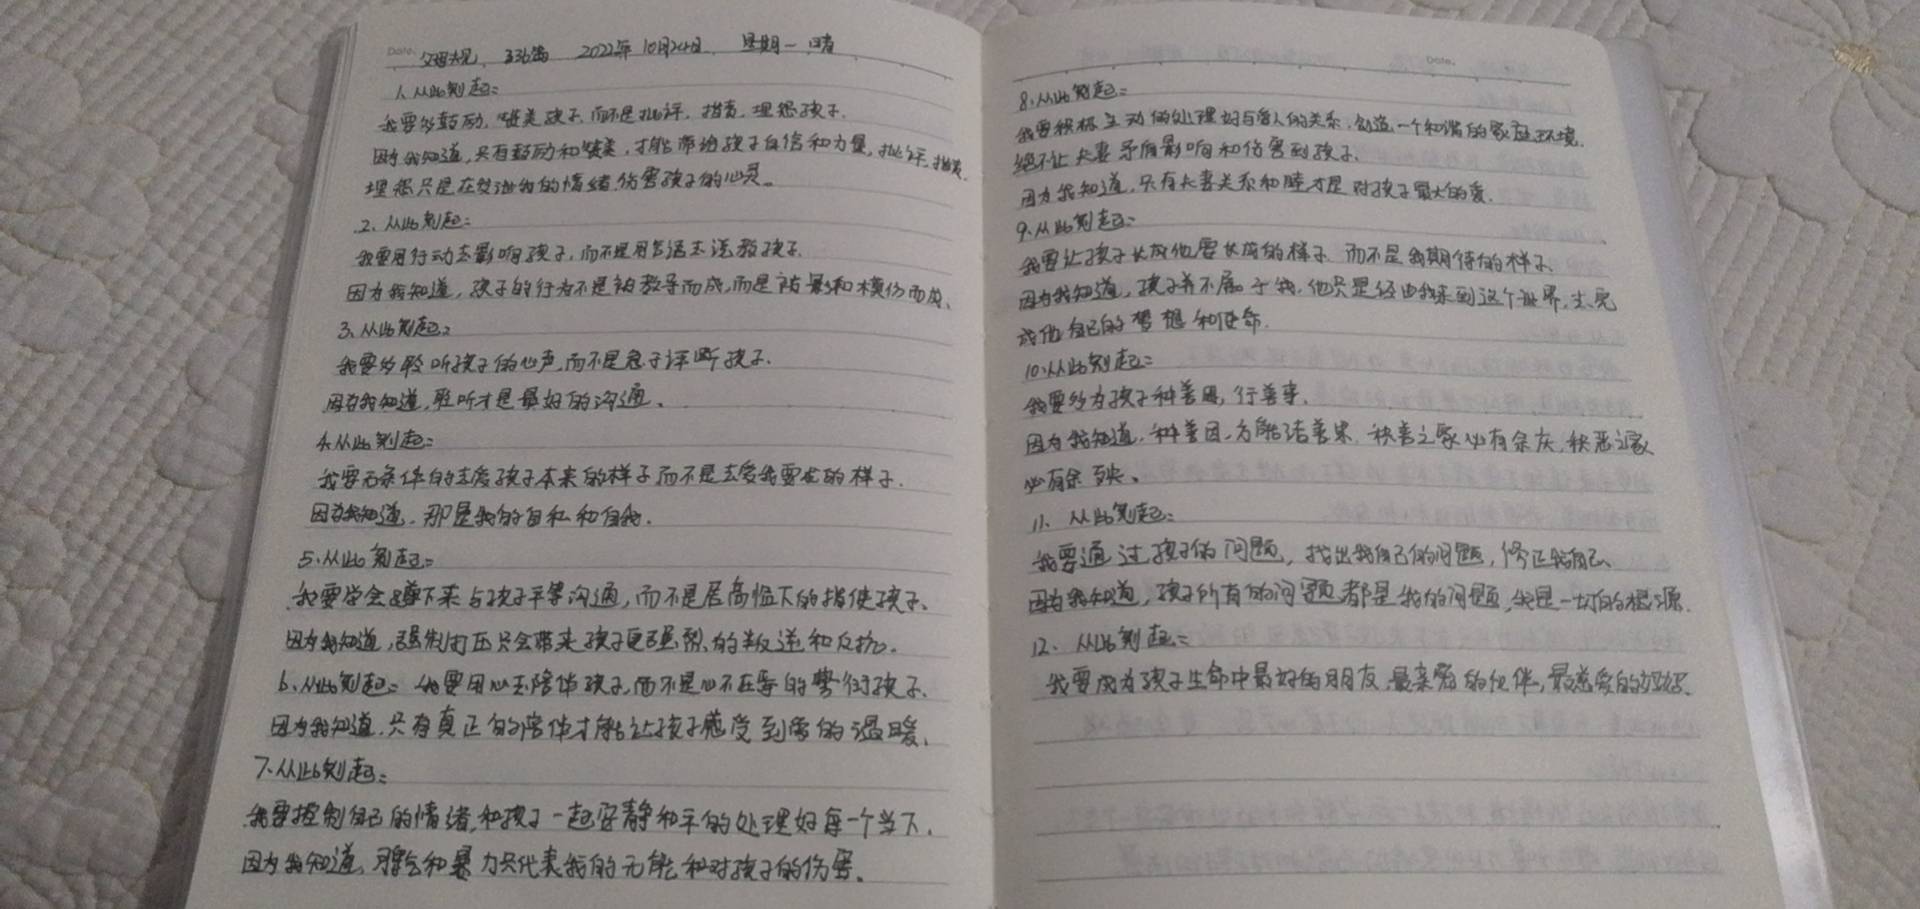 Date.
父母规 336篇 2022年10月24日 星期一 晴
1、从此刻起:
我要多鼓励,赞美孩子,而不是批评,指责,埋怨孩子.
因为我知道,只有鼓励和赞美,才能带给孩子自信和力量,批评,指责,
埋怨只是在发泄我的情绪,伤害孩子的心灵。
2、从此刻起:
我要用行动去影响孩子,而不是用言语去说教孩子.
因为我知道,孩子的行为不是被教导而成,而是被影响和模仿而成、
3、从此刻起:
我要多聆听孩子的心声,而不是急于评断孩子.
因为我知道,聆听才是最好的沟通、
4、从此刻起:
我要无条件的去爱孩子本来的样子而不是去爱我要求的样子.
因为我知道,那是我的自私和自我.
5、从此刻起:
我要学会蹲下来与孩子平等沟通,而不是居高临下的指使孩子、
因为我知道,强制打压只会带来孩子更强烈的叛逆和反抗.
6、从此刻起:我要用心去陪伴孩子,而不是心不在焉的敷衍孩子、
因为我知道,只有真正的陪伴才能让孩子感受到爱的温暖、
7、从此刻起:
我要控制自己的情绪,和孩子一起安静和平的处理好每一个当下、
因为我知道,脾气和暴力只代表我的无能和对孩子的伤害。
Date.
8、从此刻起:
我要积极主动的处理好与爱人的关系,创造一个和谐的家庭环境,
绝不让夫妻矛盾影响和伤害到孩子.
因为我知道,只有夫妻关系和睦才是对孩子最大的爱.
9、从此刻起:
我要让孩子长成他要长成的样子,而不是我期待的样子、
因为我知道,孩子并不属于我,他只是经由我来到这个世界,去完
成他自己的梦想和使命.
10、从此刻起:
我要多为孩子种善因,行善事.
因为我知道,种善因,方能结善果,积善之家必有余庆,积恶之家
必有余殃、
11、从此刻起:
我要通过孩子的问题,找出我自己的问题,修正我自己、
因为我知道,孩子所有的问题都是我的问题,我是一切的根源.
12、从此刻起:
我要成为孩子生命中最好的朋友,最亲密的伙伴,最慈爱的妈妈.